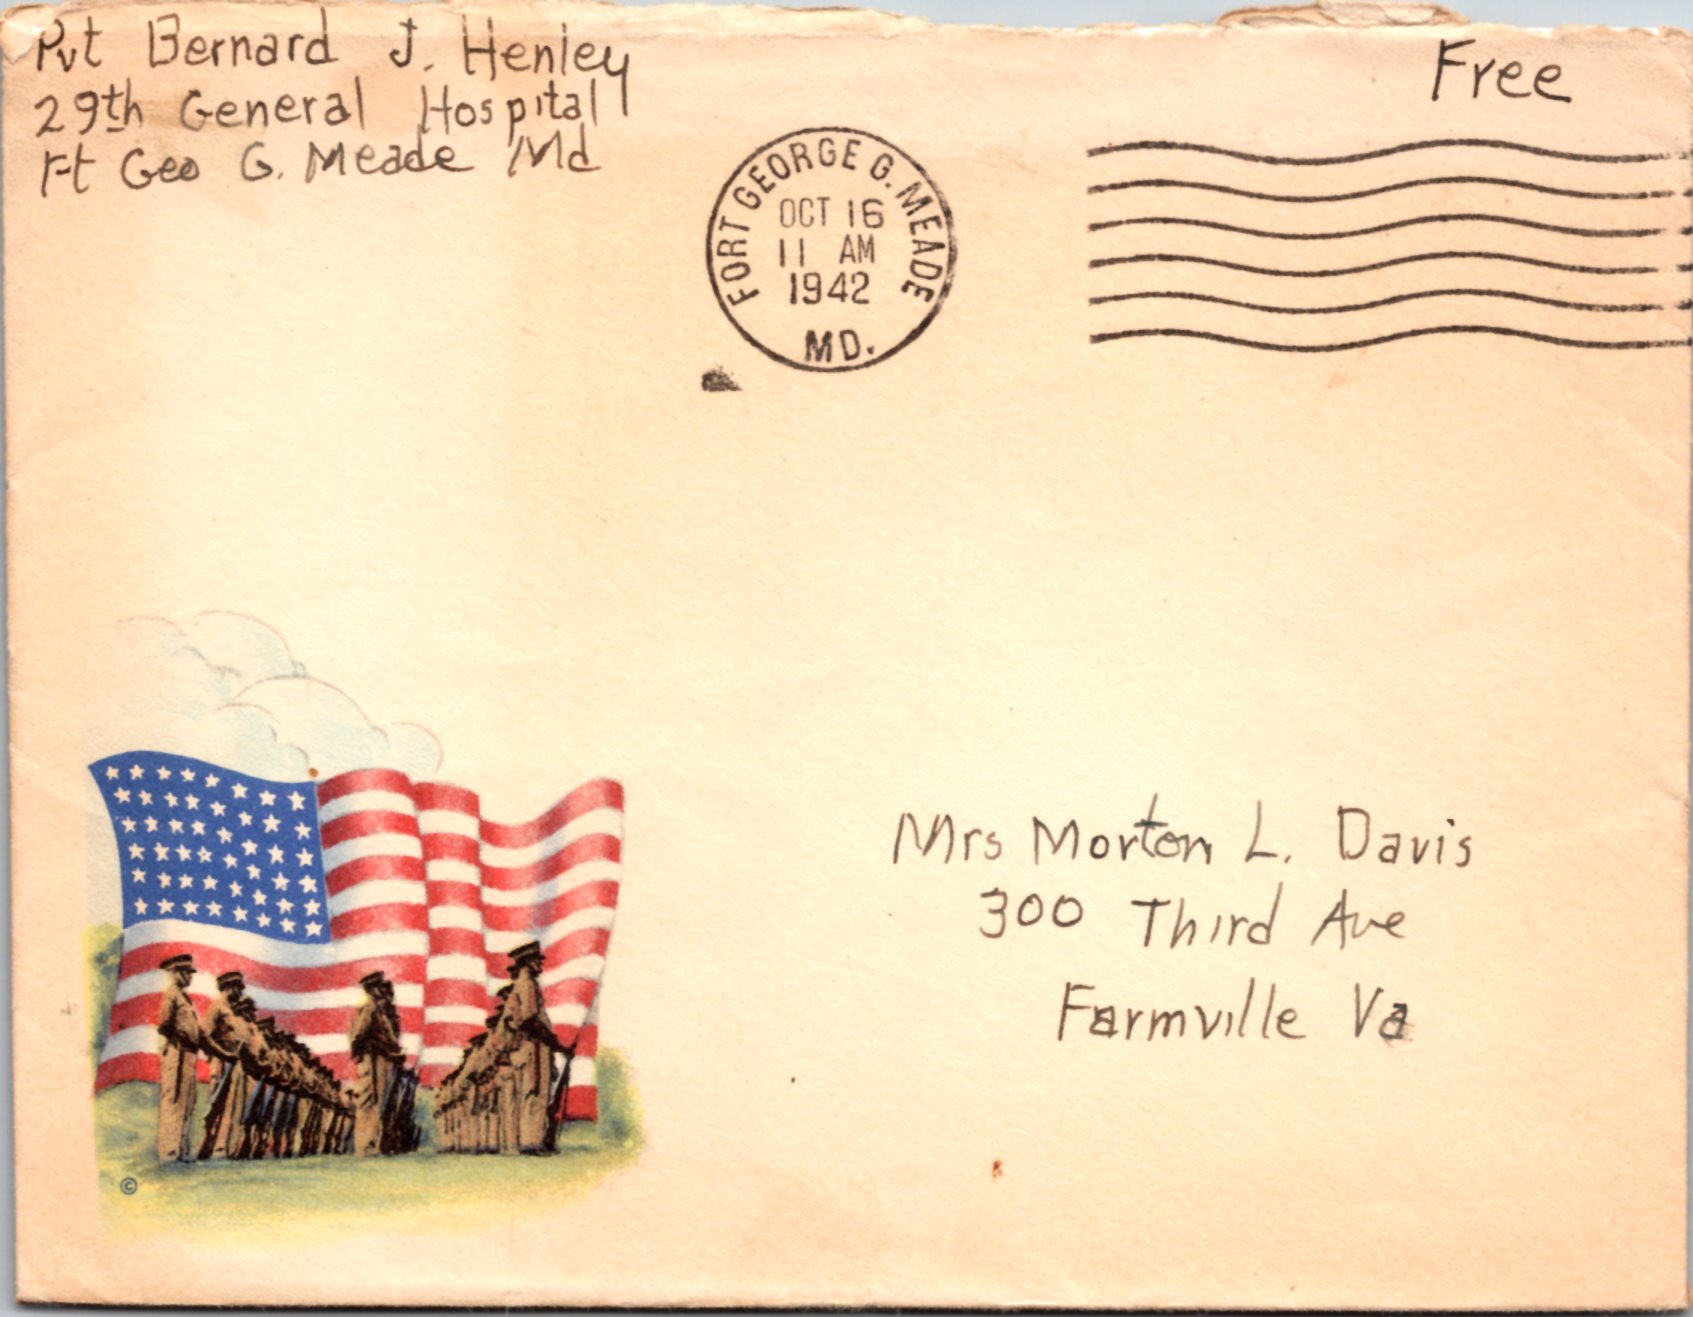 Pvt Bernard J. Henley
29th General Hospital
Ft Geo G. Meade Md
Free
FORT GEORGE G. MEADE
OCT 16
11 AM
1942
MD.
Mrs Morton L. Davis
300 Third Ave
Farmville Va
©